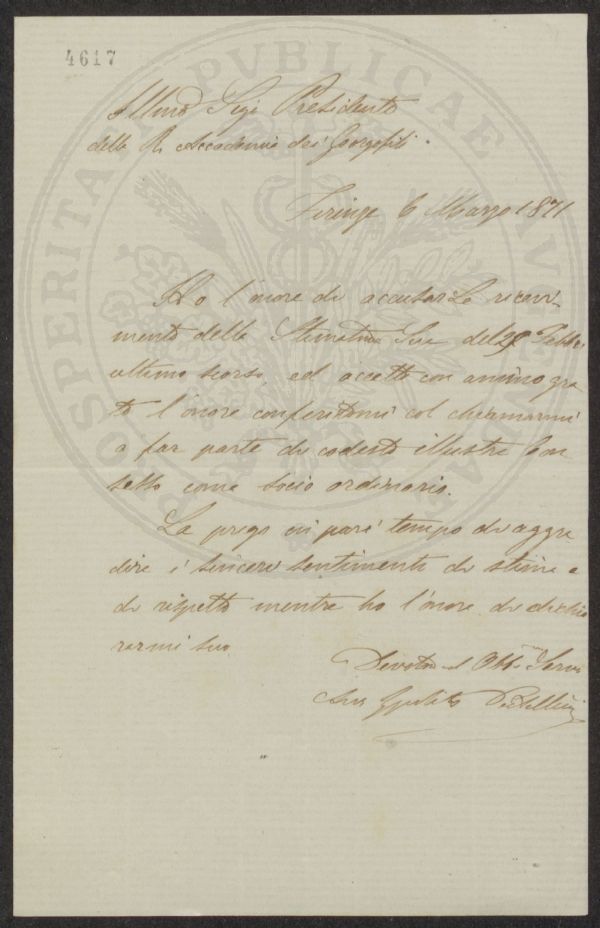 4617
PROSPERITATI PVBLICAE AVGENDAE
Illmo Sigr Presidente
della R. Accademia dei Georgofili.
Firenze 6 Marzo 1871
Ho l'onore di accusarLe ricevi-
mento della Stimatma Sua del Febbo
ultimo scorso, ed accetto con animo gra
to l'onore conferitomi col chiamarmi
a far parte di codesto illustre Con
sesso come socio ordinario.
La prego in pari tempo di aggra
dire i sinceri sentimenti di stima e
di rispetto mentre ho l'onore di dichia
rarmi suo
Devotmo ed Obbmo Servo